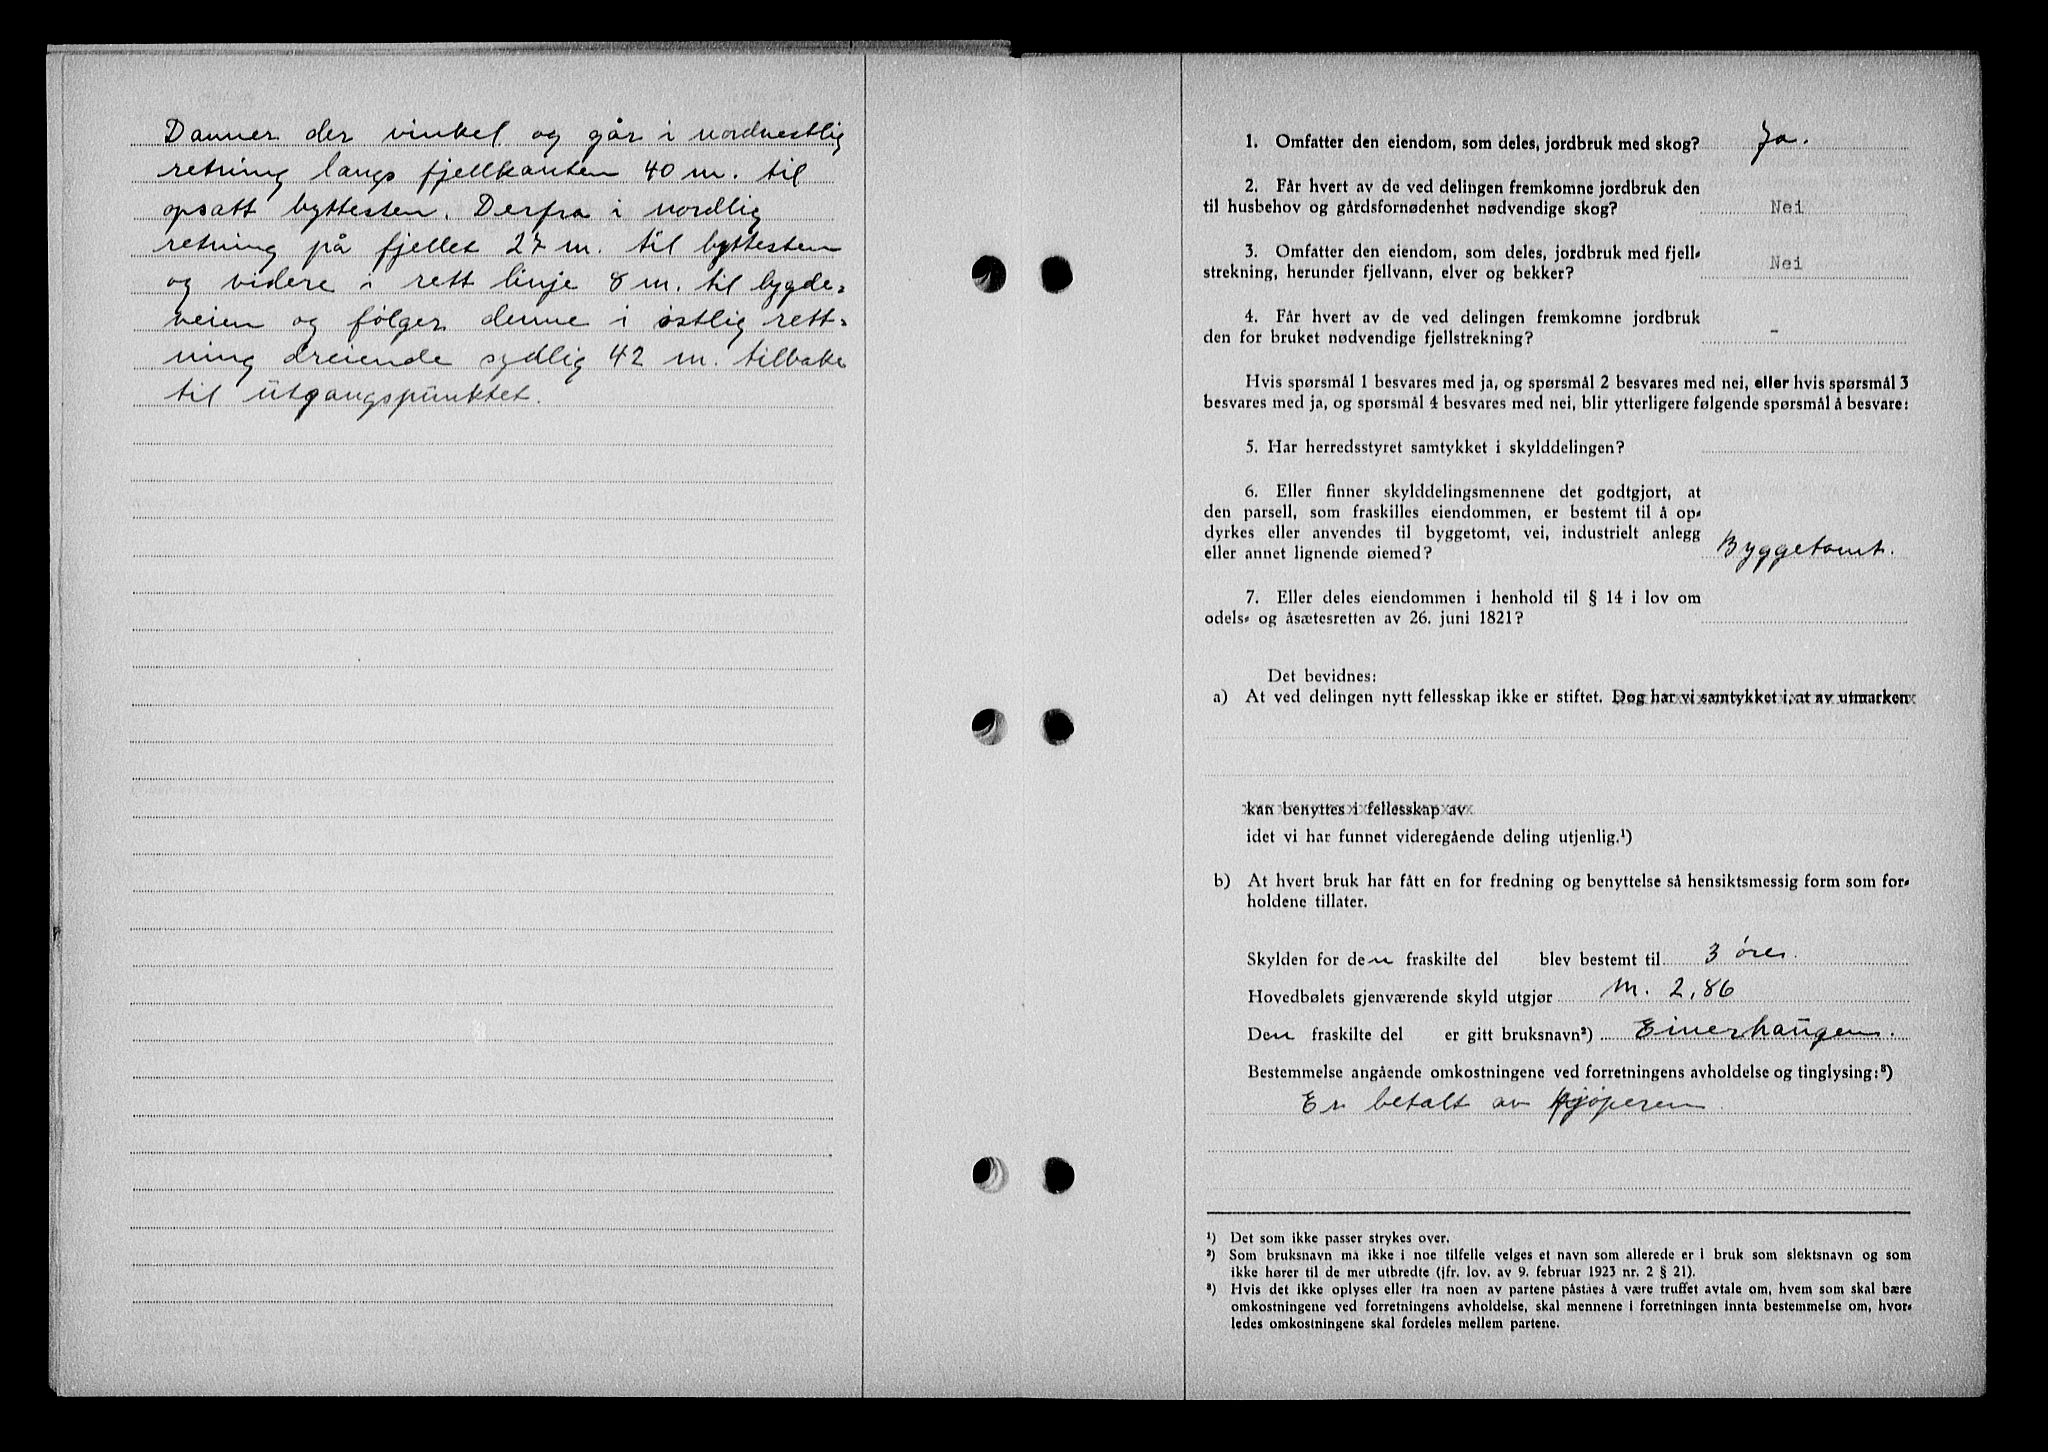 Danner der vinkel og går i nordvestlig
retning langs fjellkanten 40 m. til
opsatt byttesten. Derfra i nordlig
retning på fjellet 27 m. til byttesten
og videre i rett linje 8 m. til bygde-
veien og følger denne i østlig rett-
ning dreiende sydlig 42 m. tilbake
til utgangspunktet.
1. Omfatter den eiendom, som deles, jordbruk med skog? Ja.
2. Får hvert av de ved delingen fremkomne jordbruk den
til husbehov og gårdsfornødenhet nødvendige skog? Nei
3. Omfatter den eiendom, som deles, jordbruk med fjell-
strekning, herunder fjellvann, elver og bekker? Nei
4. Får hvert av de ved delingen fremkomne jordbruk
den for bruket nødvendige fjellstrekning? -
Hvis spørsmål 1 besvares med ja, og spørsmål 2 besvares med nei, eller hvis spørsmål 3
besvares med ja, og spørsmål 4 besvares med nei, blir ytterligere følgende spørsmål å besvare:
5. Har herredsstyret samtykket i skylddelingen?
6. Eller finner skylddelingsmennene det godtgjort, at
den parsell, som fraskilles eiendommen, er bestemt til å op-
dyrkes eller anvendes til byggetomt, vei, industrielt anlegg
eller annet lignende øiemed? Byggetomt.
7. Eller deles eiendommen i henhold til § 14 i lov om
odels- og åsætesretten av 26. juni 1821?
Det bevidnes:
a) At ved delingen nytt fellesskap ikke er stiftet. Dog har vi samtykket i, at av utmarken
kan benyttes i fellesskap av
idet vi har funnet videregående deling utjenlig.¹)
b) At hvert bruk har fått en for fredning og benyttelse så hensiktsmessig form som for-
holdene tillater.
Skylden for den fraskilte del blev bestemt til 3 øre.
Hovedbølets gjenværende skyld utgjør m. 2,86
Den fraskilte del er gitt bruksnavn²) Einerhaugen.
Bestemmelse angående omkostningene ved forretningens avholdelse og tinglysing:³)
Er betalt av kjøperen.
¹) Det som ikke passer strykes over.
²) Som bruksnavn må ikke i noe tilfelle velges et navn som allerede er i bruk som slektsnavn og som
ikke hører til de mer utbredte (jfr. lov. av 9. februar 1923 nr. 2 § 21).
³) Hvis det ikke oplyses eller fra noen av partene påståes å være truffet avtale om, hvem som skal bære
omkostningene ved forretningens avholdelse, skal mennene i forretningen innta bestemmelse om, hvor-
ledes omkostningene skal fordeles mellem partene.